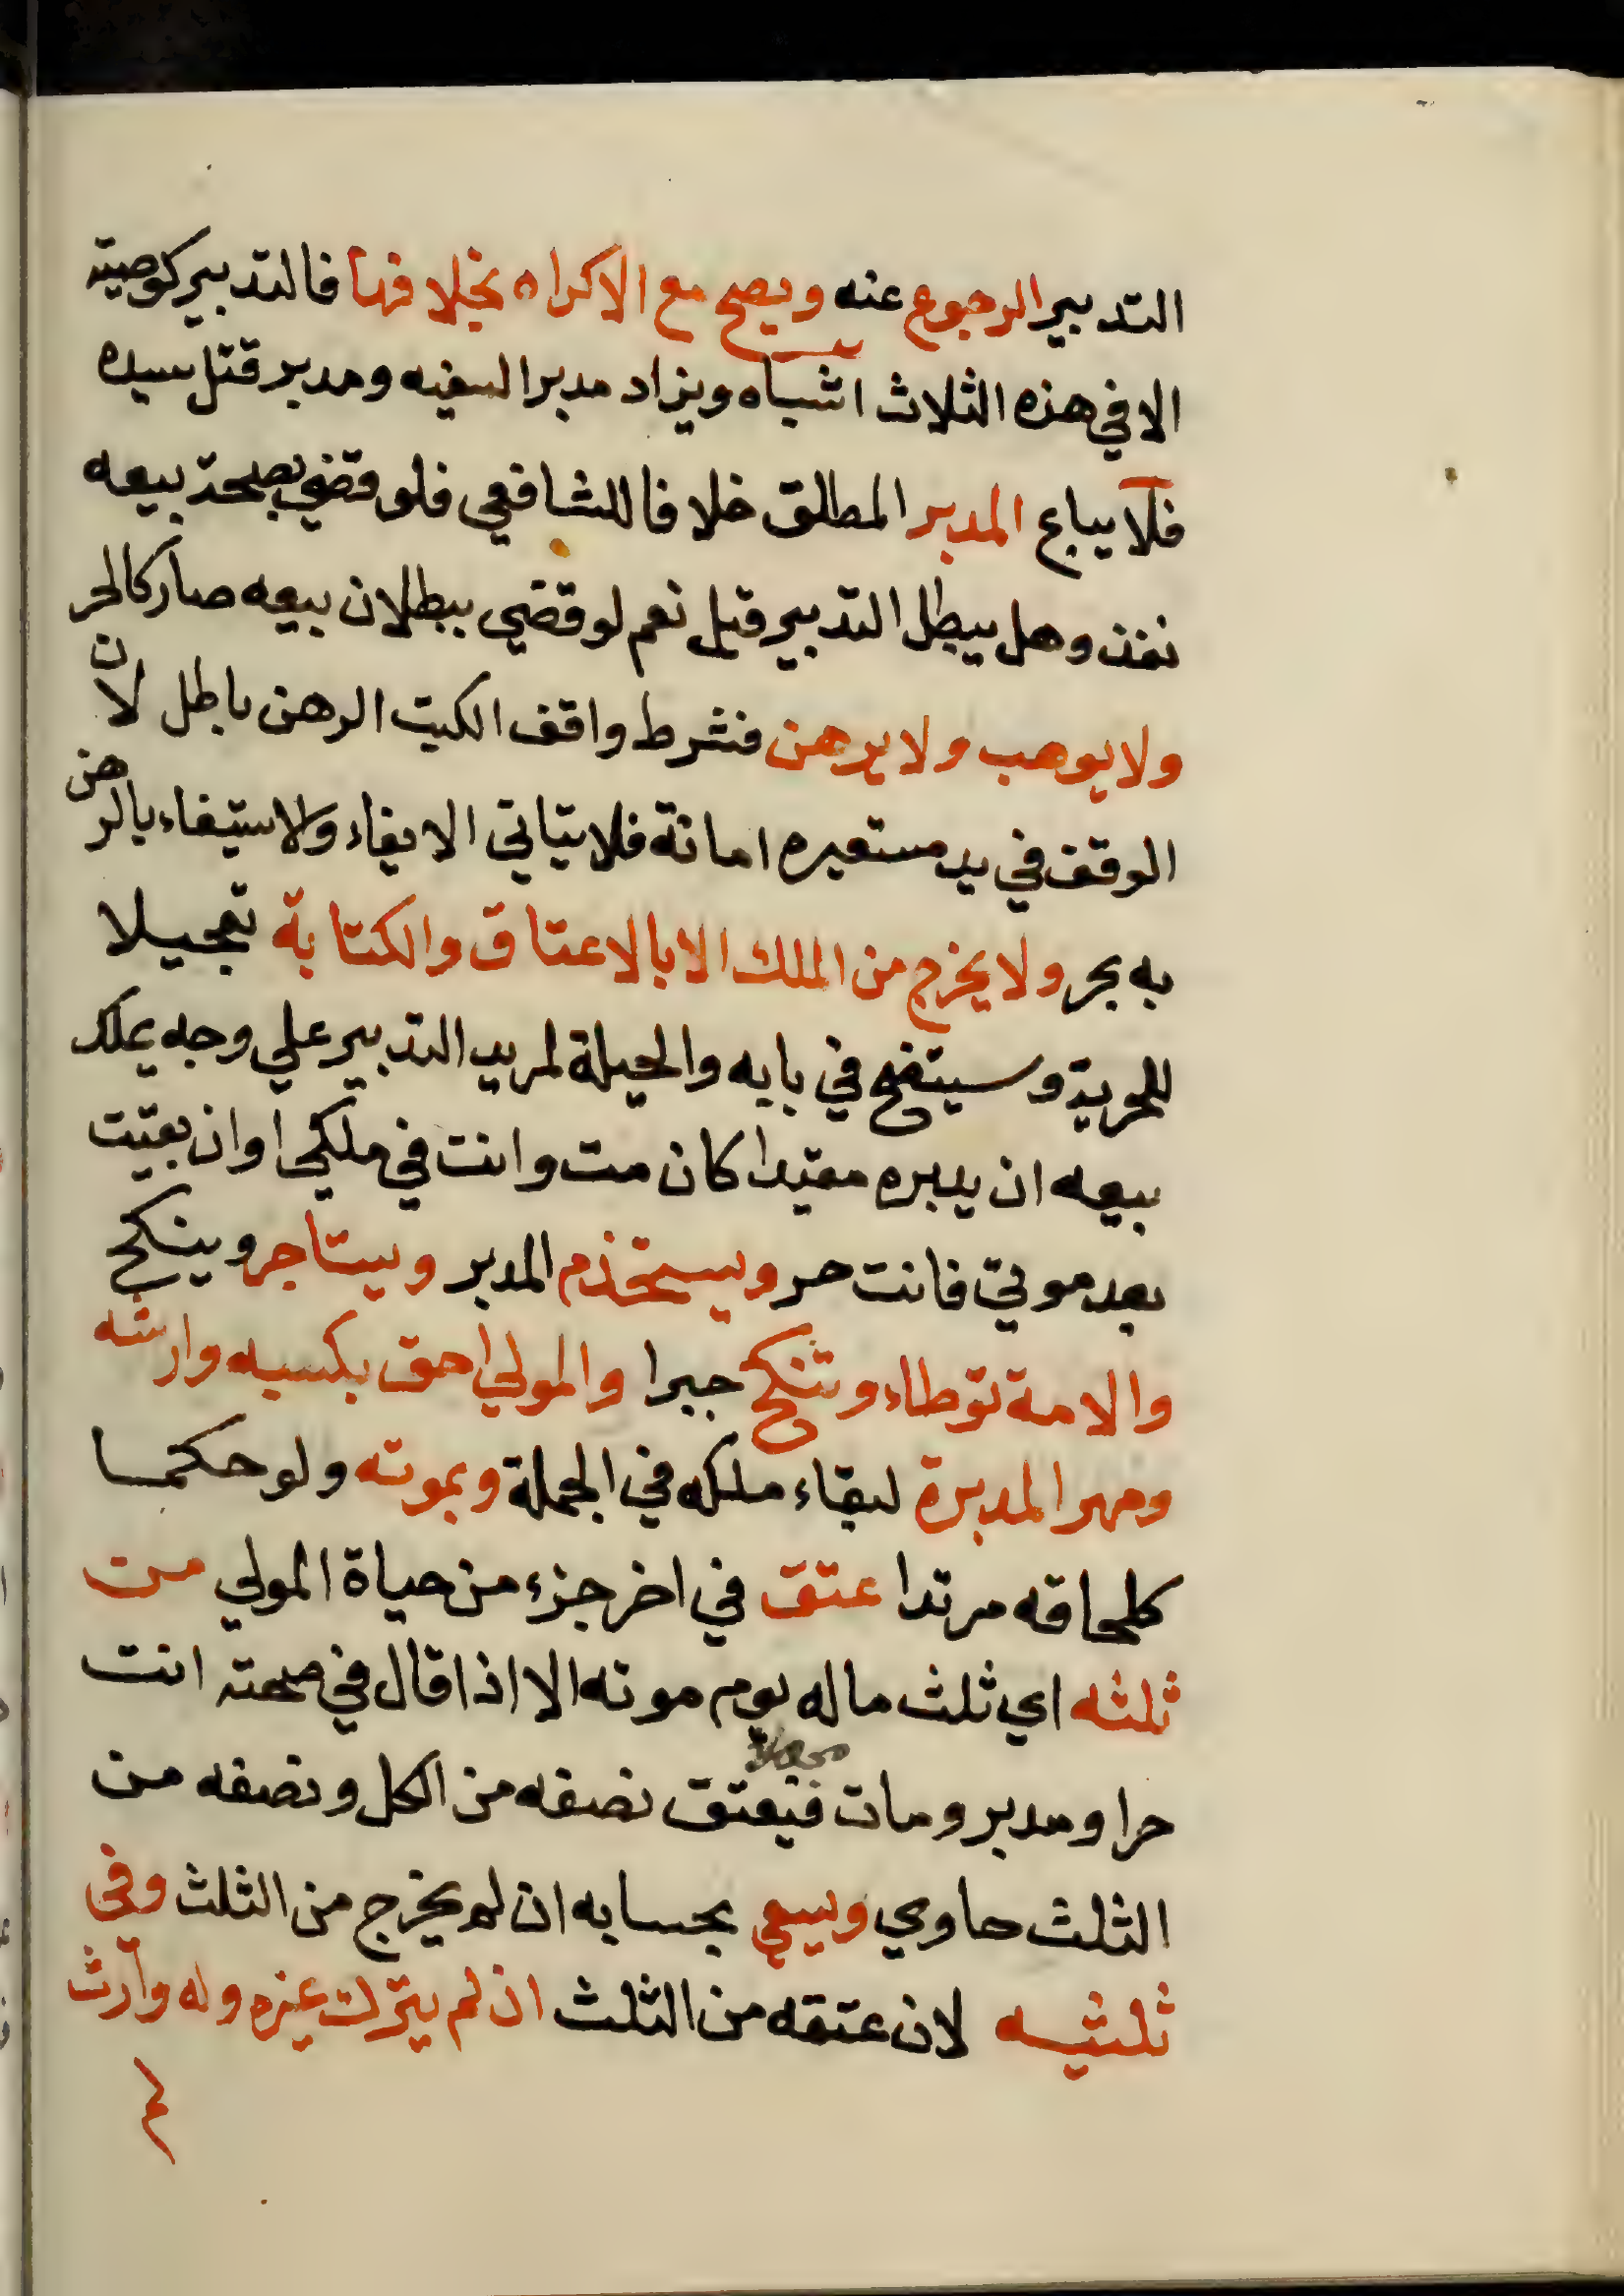 التدبير الرجوع عنه ويصح مع الاكراه بخلافها فالتدبير كوصية
الا في هذه الثلاث اشباه ويزاد مدبر السفيه ومدبر قتل سيده
فلا يباع المدبر المطلق خلافا للشافعي فلو قضي بصحة بيعه
نفذ وهل يبطل التدبير قيل نعم لو قضي ببطلان بيعه صار كالحر
ولا يوهب ولا يرهن فشرط واقف الكتب الرهن باطل لان
الوقف في يد مستعيره امانة فلا يتاتي الايفاء والاستيفاء بالرهن
به بحر ولا يخرج من الملك الا بالاعتاق والكتابة تعجيلا
للحرية وسيتضح في بابه والحيلة لمريد التدبير علي وجه يملك
بيعه ان يدبره مقيدا كان مت وانت في ملكي او ان بقيت
بعد موتي فانت حر ويستخدم المدبر ويستاجر وينكح
والامة توطاء وتنكح جبرا والمولي احق بكسبه وارشه
ومهر المدبرة لبقاء ملكه في الجملة وبموته ولو حكما
كلحاقه مرتدا عتق في اخر جزء من حياة المولي من
ثلثه اي ثلث ماله يوم موته الا اذا قال في صحته انت
حر او مدبر ومات مجهلا فيعتق نصفه من الكل ونصفه من
الثلث حاوي ويسعي بحسابه ان لم يخرج من الثلث وفي
ثلثيه لان عتقه من الثلث ان لم يترك غيره وله وارث